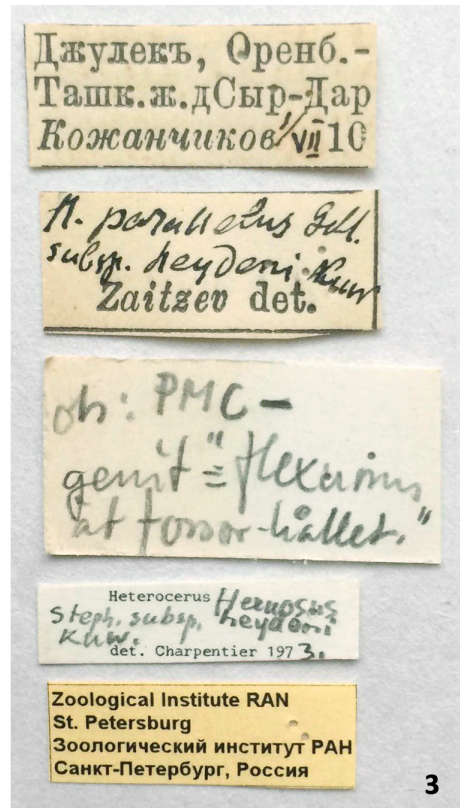 Джулекъ, Оренб.-
Ташк.ж.дСыр-Дар
Кожанчиковъ VII 10
H. parallelus Gebl.
subsp. heydeni Kuw
Zaitzev det.
obs: PMC -
genit = "flexuosus
åt fossor-hållet."
Heterocerus flexuosus
Steph. subsp. heydeni
Kuw.
det. Charpentier 1973.
Zoological Institute RAN
St. Petersburg
Зоологический институт РАН
Санкт-Петербург, Россия
3